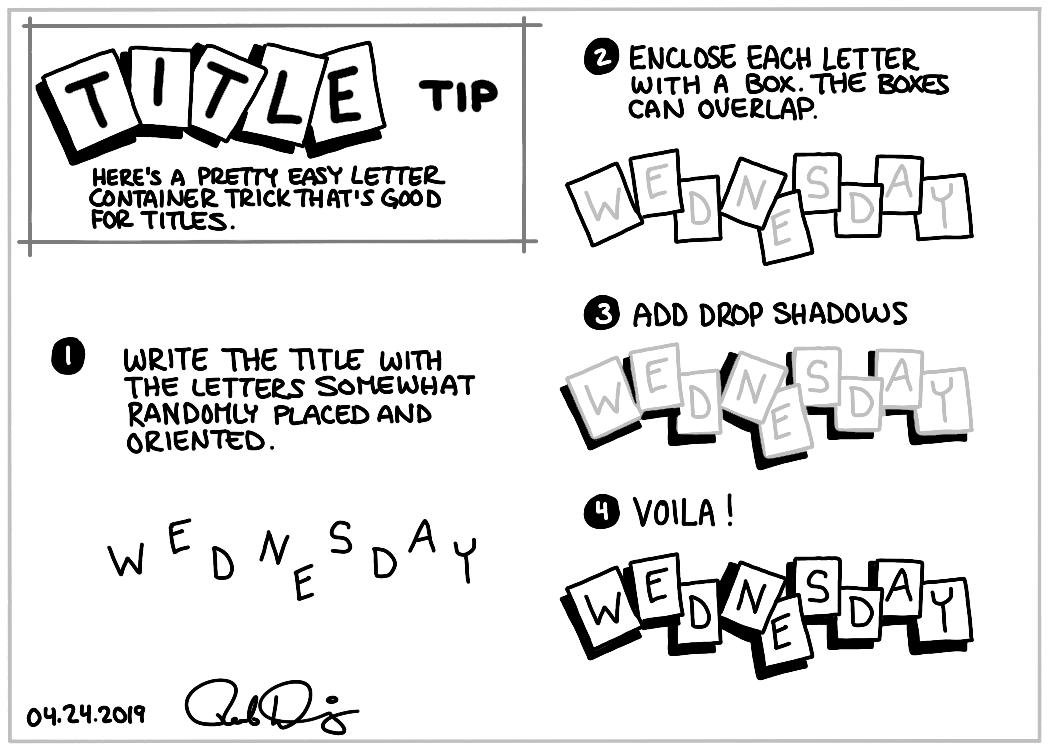 TITLE TIP
HERE'S A PRETTY EASY LETTER
CONTAINER TRICK THAT'S GOOD
FOR TITLES.
1 WRITE THE TITLE WITH
THE LETTERS SOMEWHAT
RANDOMLY PLACED AND
ORIENTED.
WEDNESDAY
04.24.2019
2 ENCLOSE EACH LETTER
WITH A BOX. THE BOXES
CAN OVERLAP.
WEDNESDAY
3 ADD DROP SHADOWS
WEDNESDAY
4 VOILA!
WEDNESDAY